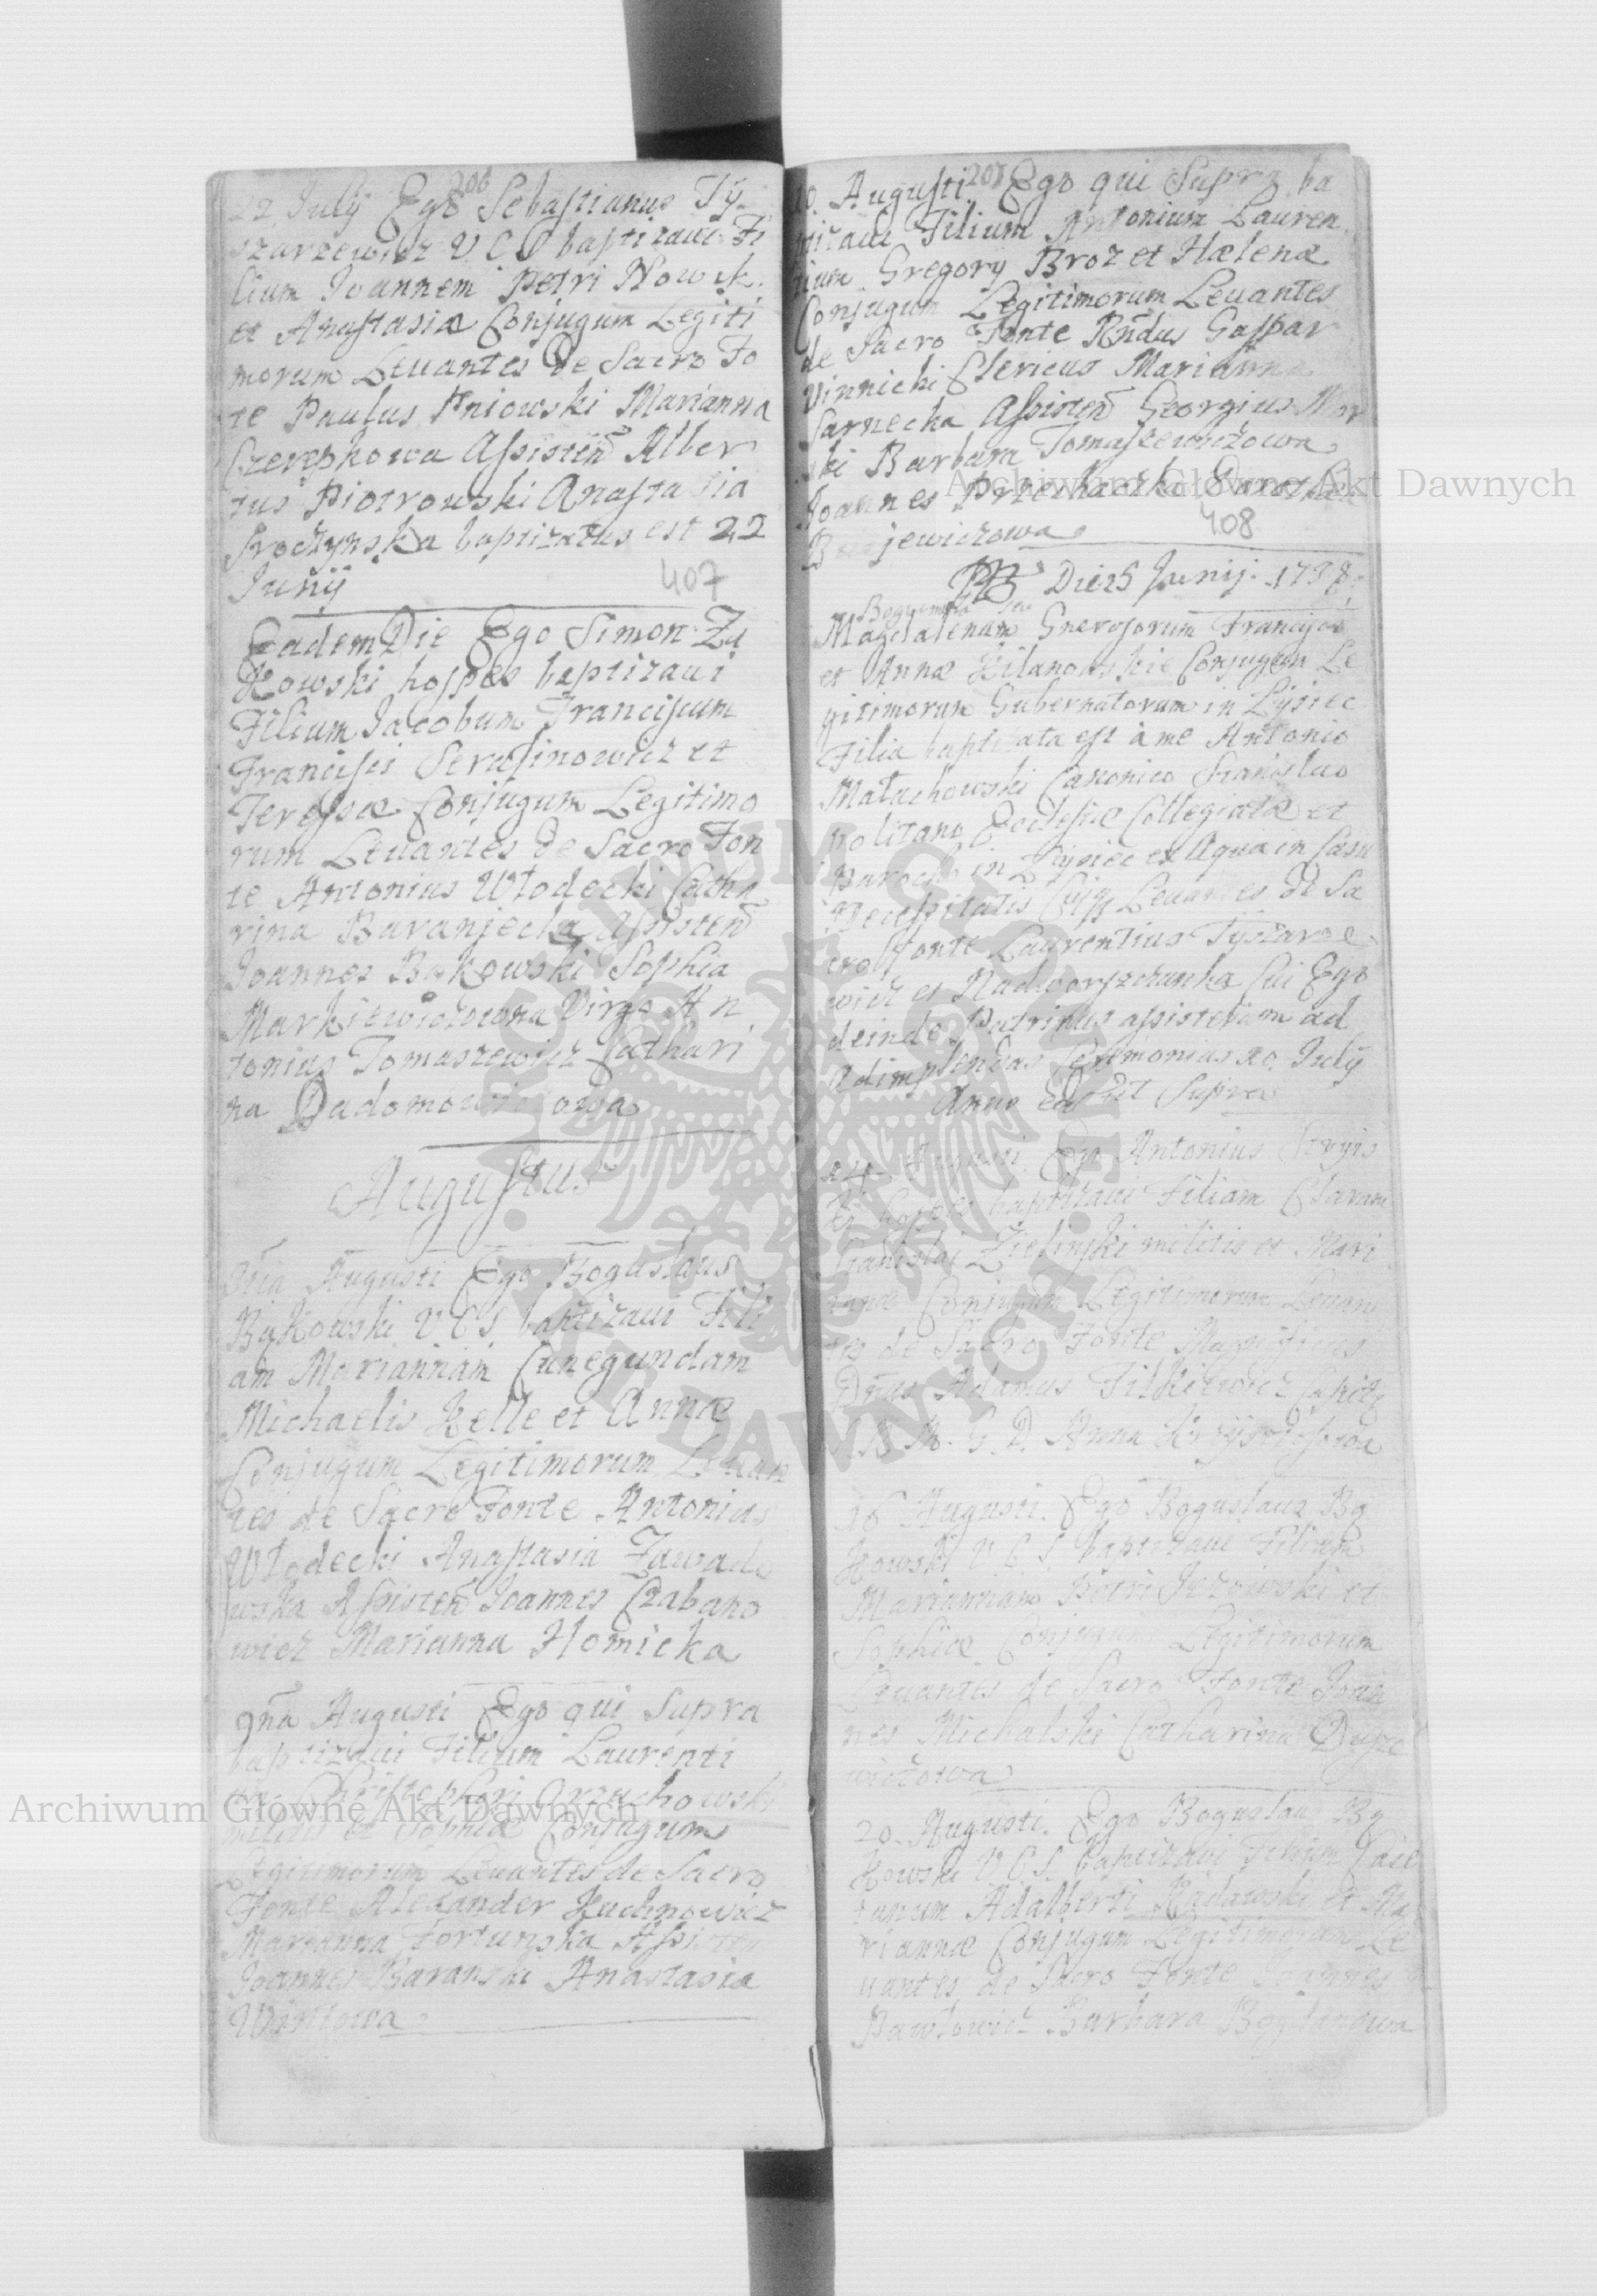 206
22 July Ego Sebastianus Ty
szarzewicz V C S baptizaui Fi
lium Joannem Petri Nowik
et Anastasiæ Conjugum Legiti
morum Leuantes de Sacro Fo
te Paulus Aniowski Marianna
Czerepkowa Assisten Alber
tus Piotrowski Anastasia
Sroczynska baptizatus est 22
Junij
407
Eadem Die Ego Simon Zu
Kowski hospes baptizaui
Filium Jacobum Franciscum
Francisci Serafinowicz et
Teressæ Conjugum Legitimo
rum Leuantes de Sacro Fon
te Antonius Włodecki Catha
rina Baranjecka Assisten
Joannes Bąkowski Sophia
Markiewiczowna Virgo An
tonius Tomaszewicz Cathari
na
Augustus
3tia Augusti Ego Boguslaus
Bąkowski V C S baptizaui Fili
am Mariannam Cunegundam
Michaelis Kelle et Annæ
Conjugum Legitimorum Leuan
tes de Sacro Fonte Antonius
Włodecki Anastasia Zawado
wska Assisten Joannes Czabano
wicz Marianna Homicka
9na Augusti Ego qui Supra
baptizaui Filium Laurenti
um Christophori
militis et Sophiæ Conjugum
Legitimorum Leuantes de Sacro
Fonte Alexander Kuchnowicz
Marianna Fortunska Assisten
Joannes Baranski Anastasia
Wojtowa
207
10. Augusti Ego qui Supra ba
ptizaui Filium Antonium Lauren
tium Gregory Broz et Hælenæ
Conjugum Legitimorum Leuantes
de Sacro Fonte Rndus Gaspar
Vinnicki Clericus Marianna
Sarnecka Assisten Georgius Mor
ski Barbara Tomaszewiczowa
Joannes
jewiczowa
408
Die 25 Junij. 1738.
Magdalenam Gnerosorum Francisci
et Annæ Kilanowskie Conjugem Le
gitimorum Gubernatorum in Łysiec
Filia baptizata est à me Antonio
Małachowski Canonico Stanislao
politano Ecclesiæ Collegiatæ et
Parocho in Łysiec ex Aqua in Casu
Necessitatis Leuantes de Sa
cro Fonte Laurentius Tyszarze
wicz et Cui Ego
deinde Patrinus assisteram ad
adimplendas Ceremonias 20. July
Anno eod ut Supra
14 Augusti Ego Antonius
hospes baptizaui Filiam Claram
Stanislai Zielinski militis et Mari
annæ Conjugum Legitimorum Leuan
tes de Sacro Fonte Magnificus
Dnus Adamus
Anna
Augusti. Ego Boguslaus Bą
kowski V C S baptizaui Filiam
Mariannam Petri Jezowski et
Sophiæ Conjugum Legitimorum
Leuantes de Sacro Fonte Joan
nes Michalski Catharina
wiczowa
20. Augusti. Ego Boguslaus Bą
kowski V C S. baptizaui Filium Caie
tanum Adalberti Radawski et Ma
riannæ Conjugum Legitimorum Le
uantes de Sacro Fonte Joannes
Pawłowicz Barbara Bogdanowa
Archiwum Główne Akt Dawnych
Archiwum Główne Akt Dawnych
ARCHIWUM GŁÓWNE AKT DAWNYCH